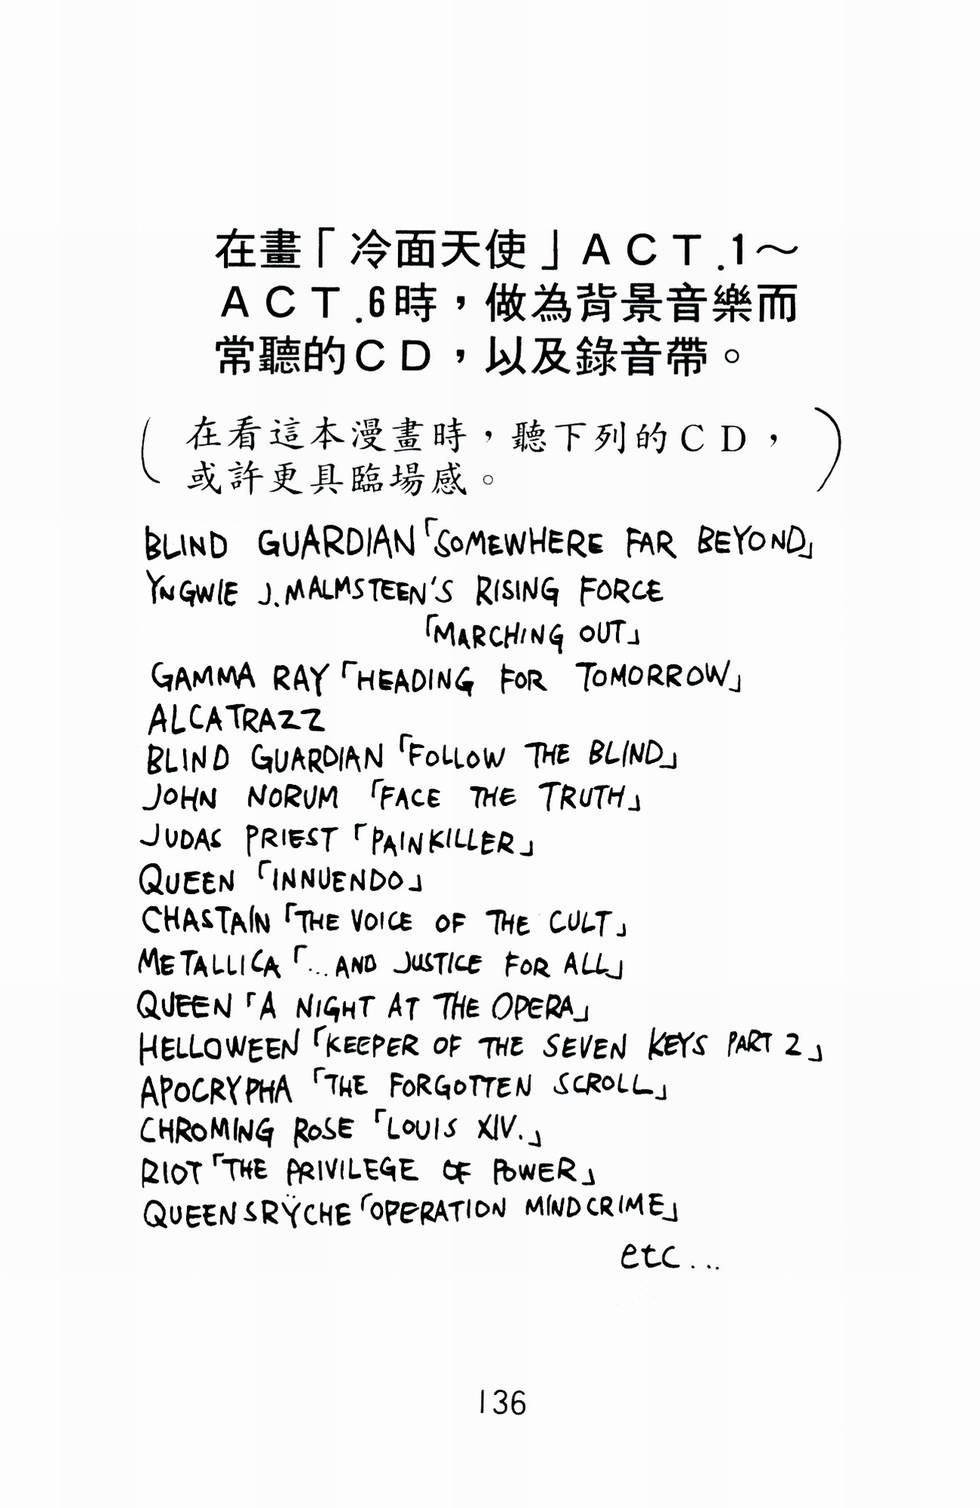 在畫「冷面天使」ACT.1～
ACT.6時，做為背景音樂而
常聽的CD，以及錄音帶。
（在看這本漫畫時，聽下列的CD，
或許更具臨場感。）
BLIND GUARDIAN「SOMEWHERE FAR BEYOND」
YNGWIE J.MALMSTEEN'S RISING FORCE
「MARCHING OUT」
GAMMA RAY「HEADING FOR TOMORROW」
ALCATRAZZ
BLIND GUARDIAN「FOLLOW THE BLIND」
JOHN NORUM「FACE THE TRUTH」
JUDAS PRIEST「PAINKILLER」
QUEEN「INNUENDO」
CHASTAIN「THE VOICE OF THE CULT」
METALLICA「...AND JUSTICE FOR ALL」
QUEEN「A NIGHT AT THE OPERA」
HELLOWEEN「KEEPER OF THE SEVEN KEYS PART 2」
APOCRYPHA「THE FORGOTTEN SCROLL」
CHROMING ROSE「LOUIS XIV.」
RIOT「THE PRIVILEGE OF POWER」
QUEENSRŸCHE「OPERATION MINDCRIME」
etc...
136